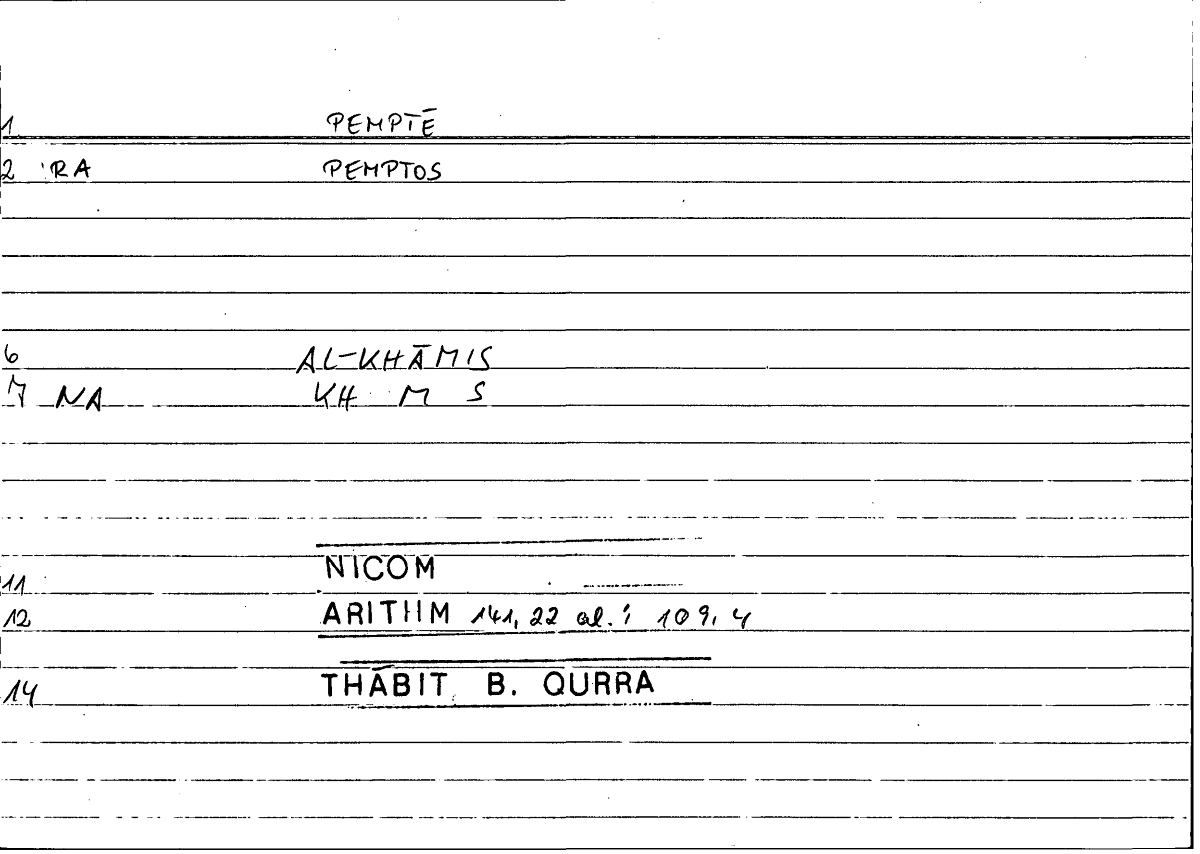 1. PEMPTĒ
2 RA PEMPTOS
6 AL-KHĀMIS
7 NA KH M S
11 NICOM
12 ARITHM 141, 22 al. ; 109, 4
14 THĀBIT B. QURRA